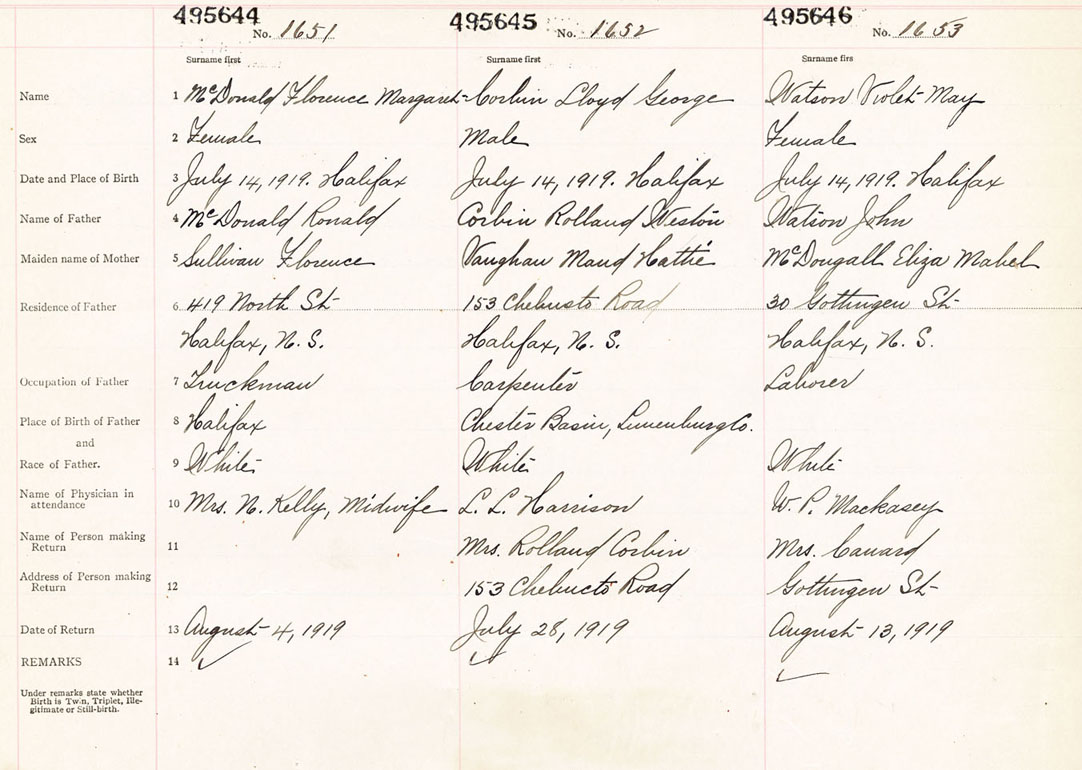 495644 495645 495646
No. 1651 No. 1652 No. 1653
Surname first Surname first Surname firs
Name 1 McDonald Florence Margaret Corbin Lloyd George Watson Violet May
Sex 2 Female Male Female
Date and Place of Birth 3 July 14, 1919. Halifax July 14, 1919. Halifax July 14, 1919. Halifax
Name of Father 4 McDonald Ronald Corbin Rolland Weston Watson John
Maiden name of Mother 5 Sullivan Florence Vaughan Maud Hattie McDougall Eliza Mabel
Residence of Father 6 419 North St 153 Chebucto Road 30 Gottingen St
Halifax, N. S. Halifax, N. S. Halifax, N. S.
Occupation of Father 7 Truckman Carpenter Laborer
Place of Birth of Father 8 Halifax Chester Basin, Lunenburg Co.
and
Race of Father. 9 White White White
Name of Physician in
attendance 10 Mrs. N. Kelly, Midwife L. L. Harrison W. P. Mackasey
Name of Person making
Return 11 Mrs. Rolland Corbin Mrs. Canard
Address of Person making
Return 12 153 Chebucto Road Gottingen St
Date of Return 13 August 4, 1919 July 28, 1919 August 13, 1919
REMARKS 14
Under remarks state whether
Birth is Twin, Triplet, Ille-
gitimate or Still-birth.